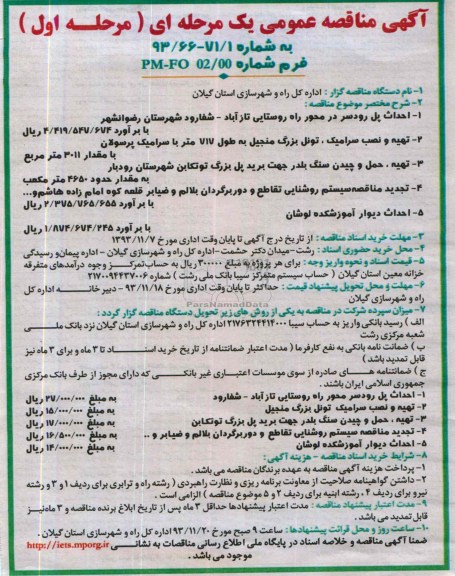 آگهی مناقصه عمومی یک مرحله ای ( مرحله اول )
به شماره ۹۳/۶۶-۷۱/۱
فرم شماره PM-FO 02/00
۱- نام دستگاه مناقصه گزار : اداره کل راه و شهرسازی استان گیلان
۲- شرح مختصر موضوع مناقصه :
۱- احداث پل رودسر در محور راه روستایی تازآباد - شفارود شهرستان رضوانشهر
با برآورد ۴/۴۱۹/۵۴۷/۶۷۴ ریال
۲- تهیه و نصب سرامیک ، تونل بزرگ منجیل به طول ۷۱۷ متر با سرامیک پرسولان
با مقدار ۳۰۱۱ متر مربع
۳- تهیه ، حمل و چیدن سنگ بلدر جهت برید پل بزرگ توتکابن شهرستان رودبار
به مقدار حدود ۴۶۵۰ متر مکعب
۴- تجدید مناقصه سیستم روشنایی تقاطع و دوربرگردان بلالم و ضیابر قلعه کوه امام زاده هاشم و...
با برآورد ۲/۳۷۵/۷۶۵/۶۵۵ ریال
۵- احداث دیوار آموزشکده لوشان
با برآورد ۱/۸۷۴/۶۷۴/۲۴۵ ریال
۳- مهلت خرید اسناد مناقصه : از تاریخ درج آگهی تا پایان وقت اداری مورخ ۱۳۹۳/۱۱/۷
۴- محل خرید حضوری اسناد : رشت-میدان دکتر حشمت-اداره کل راه و شهرسازی گیلان - اداره پیمان و رسیدگی
۵- قیمت اسناد و نحوه واریز وجه : برای هر پروژه به مبلغ ۳۰۰۰۰۰ ریال به حساب تمرکز وجوه درآمدهای متفرقه
خزانه معین استان گیلان ( حساب سیستم متمرکز سیبا بانک ملی رشت ) شماره ۲۱۷۰۰۹۴۴۳۷۰۰۶
۶- مهلت و محل تحویل پیشنهاد قیمت : حداکثر تا پایان وقت اداری مورخ ۹۳/۱۱/۱۸ - دبیرخانه اداره کل
راه و شهرسازی گیلان
ParsNamadData
۷- میزان سپرده شرکت در مناقصه به یکی از روش های زیر تحویل دستگاه مناقصه گزار گردد :
الف ) رسید بانکی واریز به حساب سیبا ۲۱۷۶۳۲۴۴۱۴۰۰۰ اداره کل راه و شهرسازی استان گیلان نزد بانک ملی
شعبه مرکزی رشت
ب ) ضمانت نامه بانکی به نفع کارفرما ( مدت اعتبار ضمانتنامه از تاریخ خرید اسناد تا ۳ ماه و برای ۳ ماه نیز
قابل تمدید باشد )
ج ) ضمانتنامه های صادره از سوی موسسات اعتباری غیر بانکی که دارای مجوز از طرف بانک مرکزی
جمهوری اسلامی ایران باشند.
۱- احداث پل رودسر محور راه روستایی تازآباد - شفارود به مبلغ ۲۷/۰۰۰/۰۰۰ ریال
۲- تهیه و نصب سرامیک تونل بزرگ منجیل به مبلغ ۱۵/۰۰۰/۰۰۰ ریال
۳- تهیه ، حمل و چیدن سنگ بلدر جهت برید پل بزرگ توتکابن به مبلغ ۱۷/۰۰۰/۰۰۰ ریال
۴- تجدید مناقصه سیستم روشنایی تقاطع و دوربرگردان بلالم و ضیابر و .. به مبلغ ۱۶/۵۰۰/۰۰۰ ریال
۵- احداث دیوار آموزشکده لوشان به مبلغ ۱۴/۰۰۰/۰۰۰ ریال
۸- شرایط خرید اسناد مناقصه - هزینه آگهی :
۱- پرداخت هزینه آگهی مناقصه به عهده برندگان مناقصه می باشد .
۲- داشتن گواهینامه صلاحیت از معاونت برنامه ریزی و نظارت راهبردی ( رشته راه و ترابری برای ردیف ۱ و ۳ و رشته
نیرو برای ردیف ۴ ، رشته ابنیه برای ردیف ۲ و ۵ موضوع مناقصه ) الزامی است .
۹- مدت اعتبار پیشنهاد مناقصه : مدت اعتبار پیشنهادها حداقل ۳ ماه پس از تاریخ ابلاغ برنده مناقصه و ۳ ماه نیز
قابل تمدید می باشد .
۱۰- ساعت روز و محل قرائت پیشنهادها : ساعت ۹ صبح مورخ ۹۳/۱۱/۲۰ اداره کل راه و شهرسازی استان گیلان .
ضمنا آگهی مناقصه و خلاصه اسناد در پایگاه ملی اطلاع رسانی مناقصات به نشانی http://iets.mporg.ir
موجود می باشد .